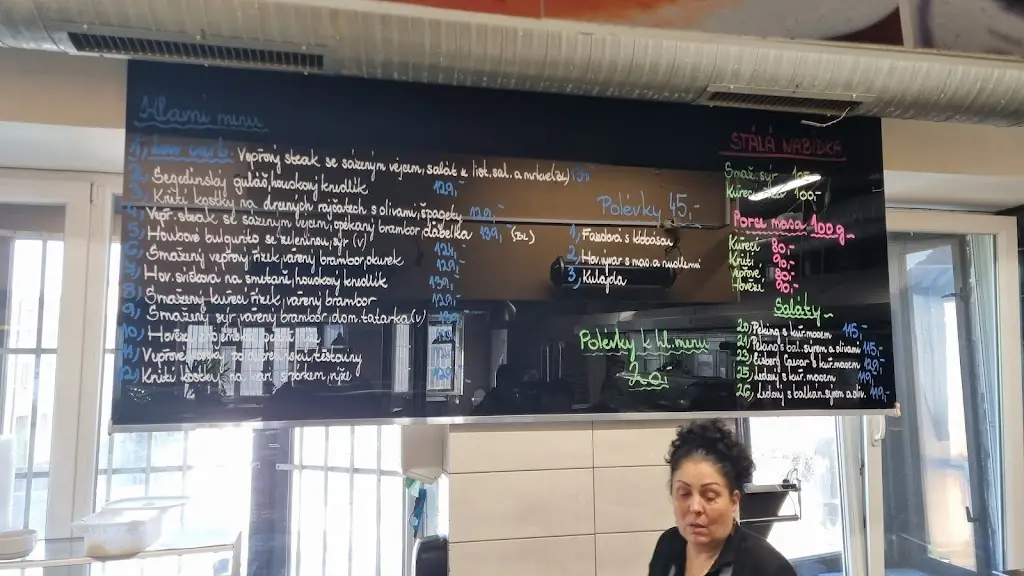 Hlavní menu
1, Vepřový steak se sázeným vejcem, salát z list. sal. a mrkve (BL)
2, Segedínský guláš, houskový knedlík 129,-
3, Krůtí kostky na drcených rajčatech s olivami, špagety
4, Vepř. steak se sázeným vejcem, opékaný brambor 139,- (BL)
5, Houbové bulgurito se zeleninou, sýr (v) 124,-
6, Smažený vepřový řízek, vařený brambor, okurek 129,-
7, Hov. svíčková na smetaně, houskový knedlík
8, Smažený kuřecí řízek, vařený brambor 129,-
9, Smažený sýr, vařený brambor, dom. tatarka (v)
10, Hovězí
11, Vepřové kostky těstoviny
12, Krůtí kostky na kari s pórkem, rýže
Polévky 45,-
1, Fazolová s klobásou
2, Hov. vývar s mas. a nudlemi
3, Kulajda
Polévky k hl. menu
20,-
STÁLÁ NABÍDKA
Smaž. sýr
Kuřecí 100,-
Porce masa 100g -
Kuřecí 80,-
Krůtí 90,-
Vepřové 80,-
Hovězí 90,-
Saláty -
20, Peking s kuř. masem 115,-
21, Peking s bal. sýrem a olivami 115,-
23, s kuř. masem
25, Ledový s kuř. masem
26, Ledový s balkan. sýrem a oliv. 119,-